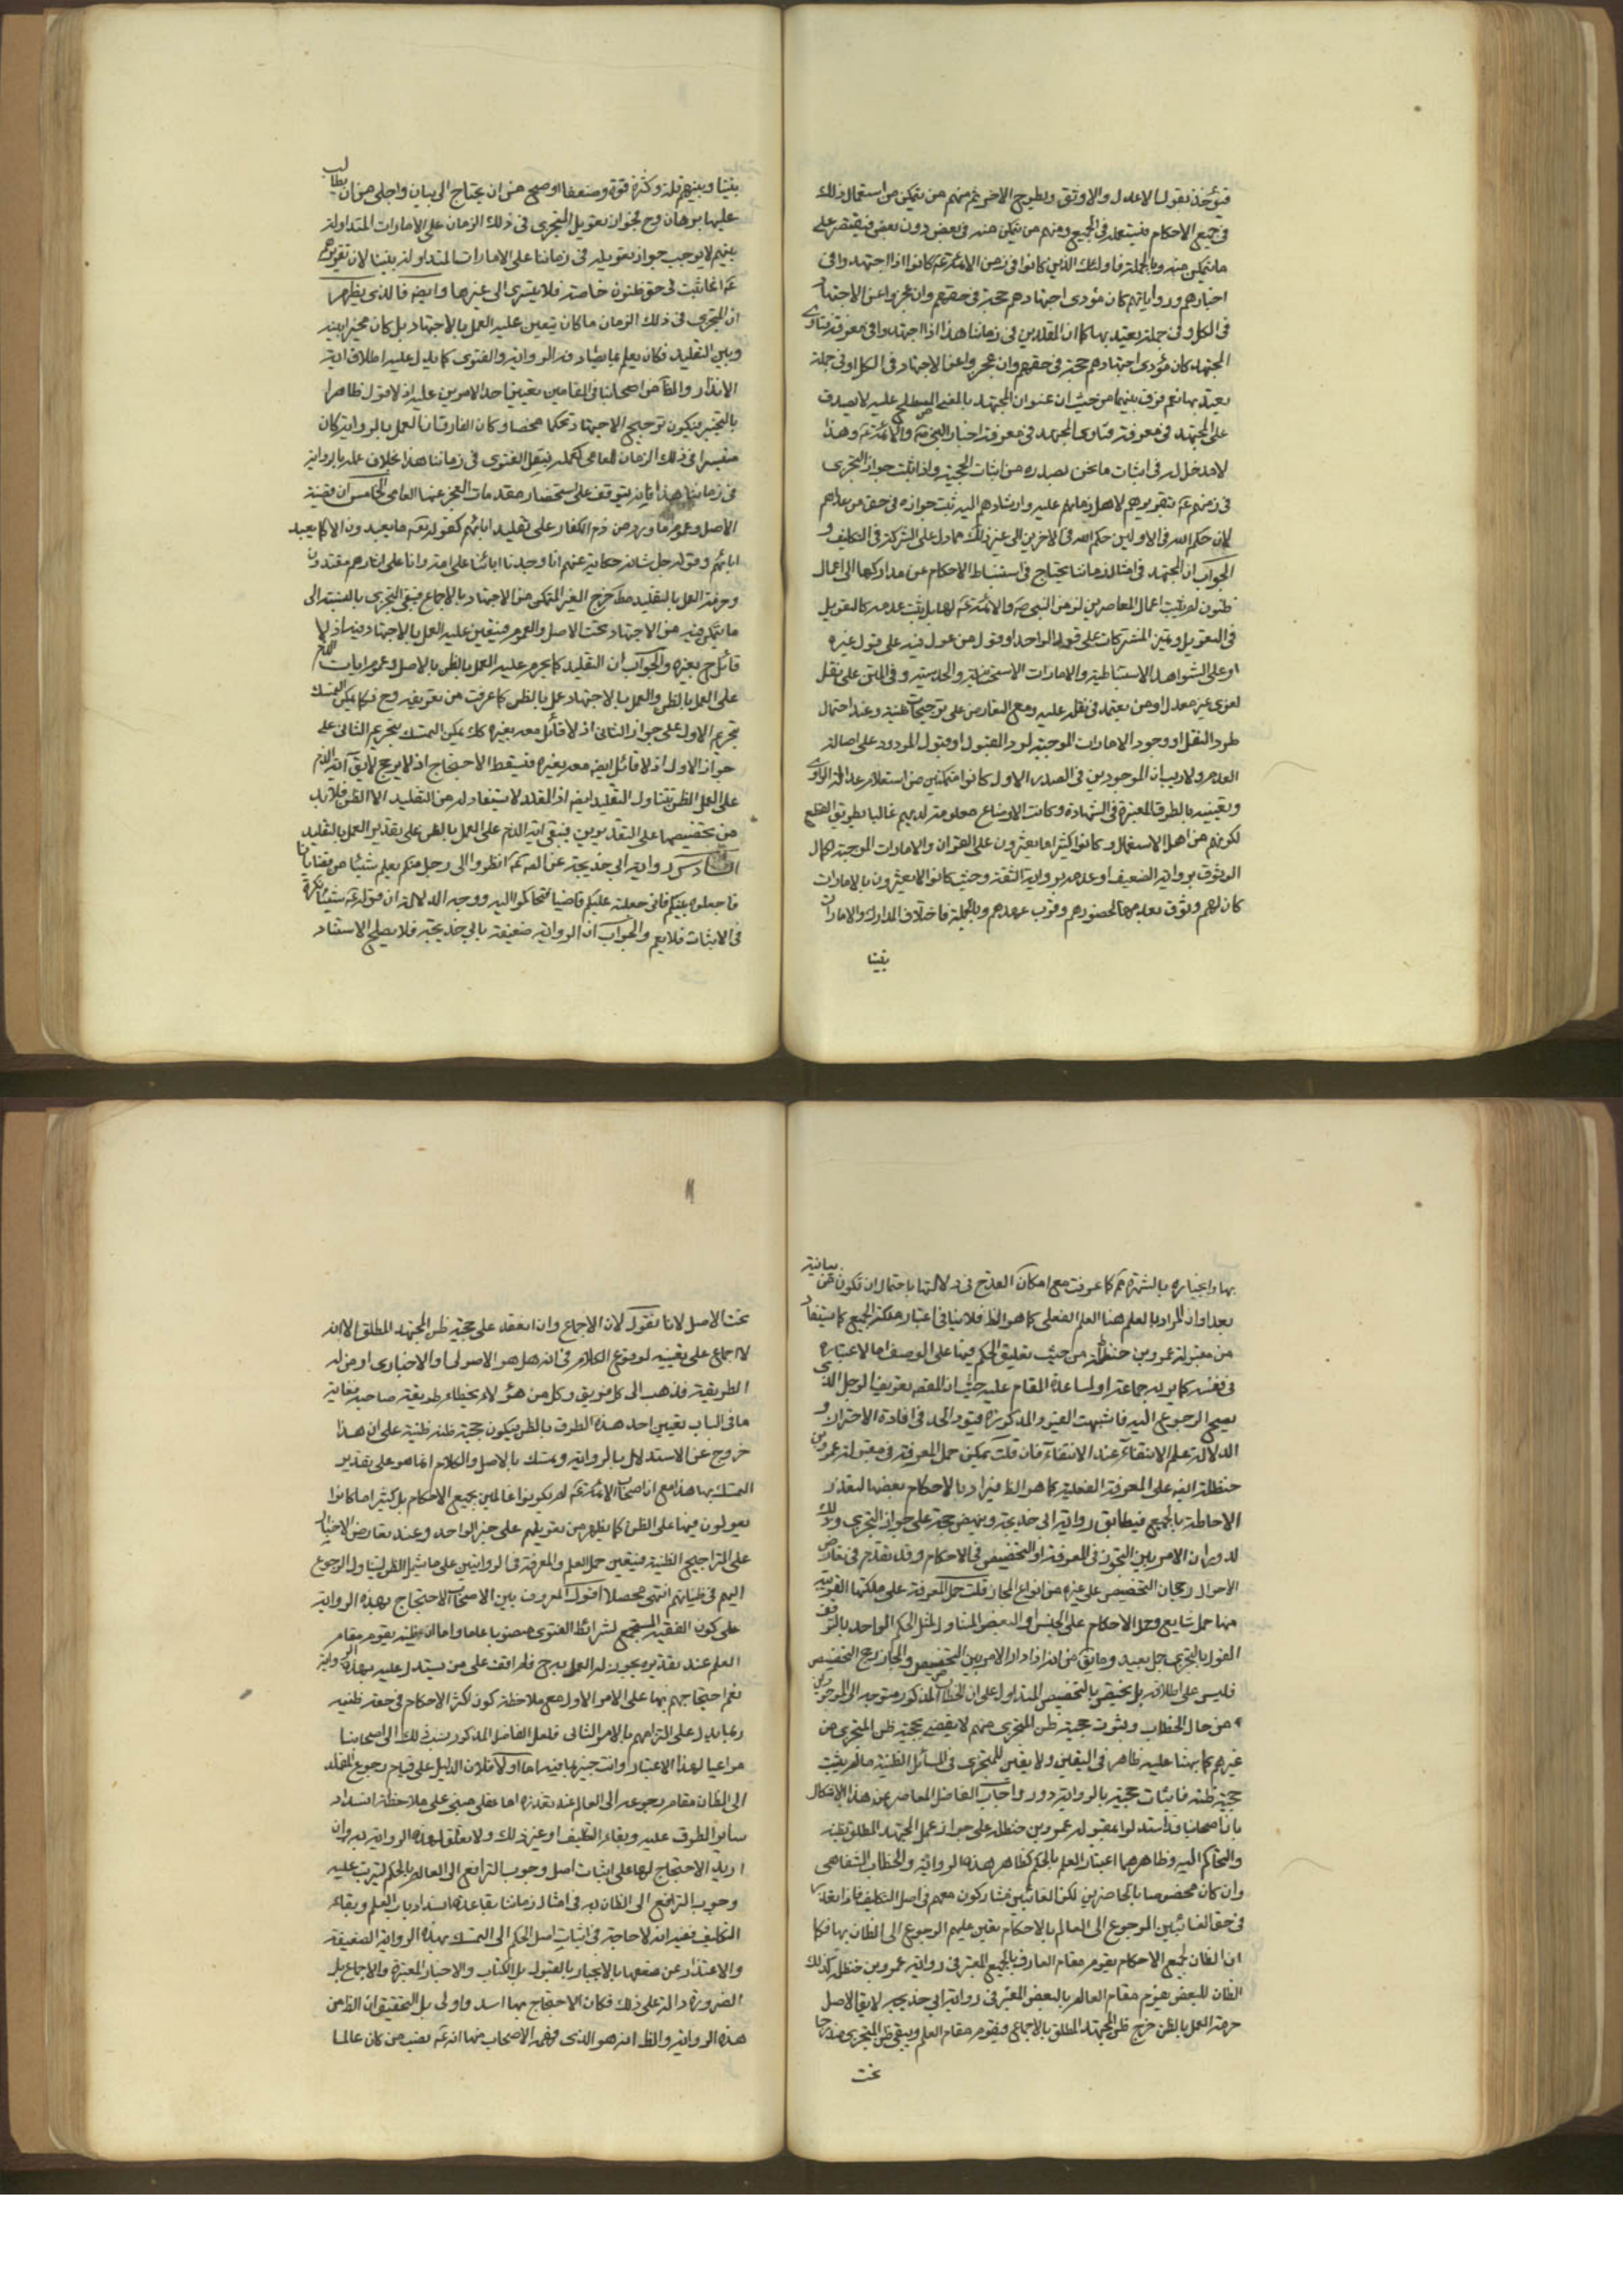 فيؤخذ بقول الاعدل والاوثق ويطرح الاخر ثم منهم من يتمكن من استعمال ذلك
في جميع الاحكام فيستعمله في الجميع ومنهم من يتمكن منه في بعض دون بعض فيقتصر على
ما يتمكن منه وبالجملة فاولئك الذين كانوا في زمن الائمة ع كانوا اذا اجتهدوا في
اخبارهم ورواياتهم كان مؤدى اجتهادهم حجة في حقهم وان عجزوا عن الاجتهاد
في الكل او في جملة يعتد بها كما ان المقلدين في زماننا هذا اذا اجتهدوا في معرفة فتاوى
المجتهد كان مؤدى اجتهادهم حجة في حقهم وان عجزوا عن الاجتهاد في الكل او في جملة
يعتد بها نعم فرق بينهما من حيث ان عنوان المجتهد بالمعنى المصطلح عليه لا يصدق
على المجتهد في معرفة فتاوى المجتهد في معرفة اخبار النبي ص والائمة ع وهذا
لا مدخل له في اثبات ما نحن بصدده من اثبات الحجية واذا ثبت جواز التجزي
في زمنهم ع بتقريرهم لاهل زمانهم عليه وارشادهم اليه ثبت جوازه في حق من بعدهم
لان حكم الله في الاولين حكم الله في الاخرين الى غير ذلك مما دل على الشركة في التكليف و
الجواب ان المجتهد في امثال زماننا يحتاج في استنباط الاحكام عن مداركها الى اعمال
ظنون لم يثبت اعمال المعاصرين لزمن النبي ص والائمة ع لها بل يثبت عدمه كالتعويل
في التعويل وتميز المشتركات على قول الواحد او قول من عول فيه على قول غيره
او على الشواهد الاستنباطية والامارات الاستحسانية والحدسية وفي المتن على نقل
لغوي غير معدل او من يعتمد في نقله عليه ومع التعارض على ترجيحات ظنية وعند احتمال
طرد النقل او وجود الامارات الموجبة لرد المقبول او قبول المردود على اصالة
العدم ولا ريب ان الموجودين في الصدر الاول كانوا متمكنين من استعلام عدالة الراوي
وتعيينه بالطرق المعتبرة في الشهادة وكانت الاوضاع معلومة لديهم غالبا بطريق القطع
لكونهم من اهل الاستعمال وكانوا كثيرا ما يعثرون على القرائن والامارات الموجبة لكمال
الوثوق برواية الضعيف او عدمه برواية الثقة وحيث كانوا لا يعثرون بالامارات
كان لهم وثوق بعدمها لحضورهم وقرب عهدهم وبالجملة فاختلاف المدارك والامارات
بيننا
بيننا وبينهم قلة وكثرة قوة وضعفا اوضح من ان يحتاج الى بيان واجلى من ان يطالب
عليها برهان وح فجواز تعويل المتجزي في ذلك الزمان على الامارات المتداولة
بينهم لا يوجب جواز تعويله في زماننا على الامارات المتداولة بيننا لان تقريرهم
ع انما ثبت في حق ظنون خاصة فلا يتسرى الى غيرها وايضا فالذي يظهر
ان المتجزي في ذلك الزمان ما كان يتعين عليه العمل بالاجتهاد بل كان مخيرا بينه
وبين التقليد فكان يعلم بما يستفاد من الرواية والفتوى كما يدل عليه اطلاق اية
الانذار والظاهر من اصحابنا في المقامين تعيين احد الامرين عليه اذ لا قول ظاهرا
بالتخيير فيكون ترجيح الاجتهاد تحكما محضا وكان الفارق ان العمل بالرواية كان
متيسرا في ذلك الزمان للعامي كعمله بنقل الفتوى في زماننا هذا بخلاف عمله بالرواية
في زماننا هذا فانه يتوقف على استحضار مقدمات العجز عنها العامي الخامس ان قضية
الاصل وعموم ما ورد من ذم الكفار على تقليد ابائهم كقوله تعالى ما يعبدون الا كما يعبد
اباؤهم وقوله جل شانه حكاية عنهم انا وجدنا اباءنا على امة وانا على اثارهم مقتدون
وحرمة العمل بالتقليد مطلقا خرج الغير المتمكن من الاجتهاد بالاجماع فبقي المتجزي بالنسبة الى
ما يتمكن فيه من الاجتهاد تحت الاصل والعموم فيتعين عليه العمل بالاجتهاد فيه اذ لا
قائل ح بغيره والجواب ان التقليد كما يحرم عليه العمل بالظن بالاصل وعموم ايات الذم
على العمل بالظن والعمل بالاجتهاد عمل بالظن كما عرفت من تعريفه وح فكما يمكن التمسك
بتحريم الاول على جواز الثاني اذ لا قائل معه بغيره كك يمكن التمسك بتحريم الثاني على
جواز الاول اذ لا قائل ايضا معه بغيره فيسقط الاحتجاج اذ لا مرجح لا يق اية الذم
على العمل بالظن تتناول التقليد ايضا اذ المقلد لا يستفاد له من التقليد الا الظن فلا بد
من تخصيصها على التقديرين فيبقى اية الذم على العمل بالظن على تقدير العمل بالتقليد
السادس رواية ابي خديجة عن الصادق ع انظروا الى رجل منكم يعلم شيئا من قضايانا
فاجعلوه بينكم فاني جعلته عليكم قاضيا فتحاكموا اليه ووجه الدلالة ان قوله ع شيئا نكرة
في الاثبات فلا يعم والجواب ان الرواية ضعيفة بابي خديجة فلا يصلح الاستناد
بها وانجباره بالشهرة مم كما عرفت مع امكان القدح في دلالتها باحتمال ان تكون من بيانية
بعد او ان المراد بالعلم هنا العلم الفعلي كما هو الظ فلا ينافي اعتبار ملكة الجميع كما يستفاد
من مقبولة عمرو بن حنظلة من حيث تعليق الحكم فيها على الوصف اما لاعتباره
في نفسه كما يراه جماعة او لمساعدة المقام عليه حيث ان المقصود تعريف الرجل الذي
يصح الرجوع اليه فاشبهت القيود المذكورة قيود الحد في افادة الاحتراز و
الدلالة على الانتفاء عند الانتفاء فان قلت يمكن حمل المعرفة في مقبولة عمرو بن
حنظلة ايضا على المعرفة الفعلية كما هو الظ فيراد بالاحكام بعضها لتعذر
الاحاطة بالجميع فيطابق رواية ابي خديجة وينهض حجة على جواز التجزي وذلك
لدوران الامر بين التجوز في المعرفة او التخصيص في الاحكام وقد تقدم في تعارض
الاحوال رجحان التخصيص على غيره من انواع المجاز قلت حمل المعرفة على ملكتها القريبة
منها حمل شايع وحمل الاحكام على الجنس او البعض المتناول لمثل الحكم الواحد بالنو
القول بالتجزي حمل بعيد وما يق من انه اذا دار الامر بين التخصيص والمجاز رجح التخصيص
فليس على اطلاقه بل يختص بالتخصيص المتداول على ان الخطاب المذكور متوجه الى الموجودين
من حال الخطاب وثبوت حجية ظن المتجزي منهم لا يقضي بحجية ظن المتجزي من
غيرهم كما نبهنا عليه ظاهر في اليقين ولا يقين للمتجزي في المسائل الظنية ما لم يثبت
حجية ظنه فاثبات حجيته بالرواية دور واجاب الفاضل المعاصر عن هذا الاشكال
بان اصحابنا قد استدلوا بمقبولة عمرو بن حنظلة على جواز عمل المجتهد المطلق بظنه
والتحاكم اليه وظاهرها اعتبار العلم بالحكم كظاهر هذه الرواية والخطاب الشفاهي
وان كان مختصا بالحاضرين لكن الغائبين مشاركون معهم في اصل التكليف فاذا تعذر
في حق الغائبين الرجوع الى العالم بالاحكام تعين عليهم الرجوع الى الظان بها فكما
ان الظان لجميع الاحكام يقوم مقام العارف بالجميع المعتبر في رواية عمرو بن حنظلة كذلك
الظان للبعض يقوم مقام العالم بالبعض المعتبر في رواية ابي خديجة لا يق الاصل
حرمة العمل بالظن خرج ظن المجتهد المطلق بالاجماع فيقوم مقام العلم ويبقى ظن المتجزي مندرجا
تحت
تحت الاصل لانا نقول لان الاجماع وان انعقد على حجية ظن المجتهد المطلق الا انه
لا اجماع على تعيينه لوقوع الكلام في انه هل هو الاصولي او الاخباري او من له
الطريقة فذهب الى كل فريق وكل من هؤلاء يخطاء طريقة صاحبه فغاية
ما في الباب تعيين احد هذه الطرق بالظن فيكون حجية ظنه ظنية على ان هذا
خروج عن الاستدلال بالرواية وتمسك بالاصل والكلام انما هو على تقدير
التمسك بها هذا مع ان اصحاب الائمة ع لم يكونوا عالمين بجميع الاحكام بل كثيرا ما كانوا
يعولون فيها على الظن كما يظهر من تعويلهم على خبر الواحد وعند تعارض الاخبار
على التراجيح الظنية فيتعين حمل العلم والمعرفة في الروايتين على ما يشمل الظن ليتناول الرجوع
اليهم في ظنياتهم انتهى محصلا اقول المعروف بين الاصحاب الاحتجاج بهذه الرواية
على كون الفقيه المستجمع لشرائط الفتوى منصوبا عاما واما ان ظنه يقوم مقام
العلم عند تقديره يجوز له العمل به ح فلم اقف على من يستدل عليه بهذه الرواية
نعم احتجاجهم بها على الامر الاول مع ملاحظة كون اكثر الاحكام في حقه ظنية
ربما يدل على التزامهم بالامر الثاني فلعل الفاضل المذكور نسب ذلك الى اصحابنا
مراعيا لهذا الاعتبار وانت خبير بما فيه اما اولا فلان الدليل على قيام رجوع المقلد
الى الظان مقام رجوعه الى العالم عند تعذره اما عقلي مبني على ملاحظة انسداد
سائر الطرق عليه وبقاء التكليف او غير ذلك ولا تعلق لهذه الرواية به وان
اريد الاحتجاج بها على اثبات اصل وجوب الترافع الى العالم بالحكم ليترتب عليه
وجوب الترافع الى الظان به في امثال زماننا بقاعدة انسداد باب العلم وبقاء
التكليف ففيه انه لا حاجة في اثبات اصل الحكم الى التمسك بهذه الرواية الضعيفة
والاعتذار عن ضعفها بالانجبار بالقبول بل الكتاب والاخبار المعتبرة والاجماع بل
الضرورة دالة على ذلك فكان الاحتجاج بها اسد واولى بل التحقيق ان الظ من
هذه الرواية والظ انه هو الذي فهمه الاصحاب منها انه ع نصب من كان عالما